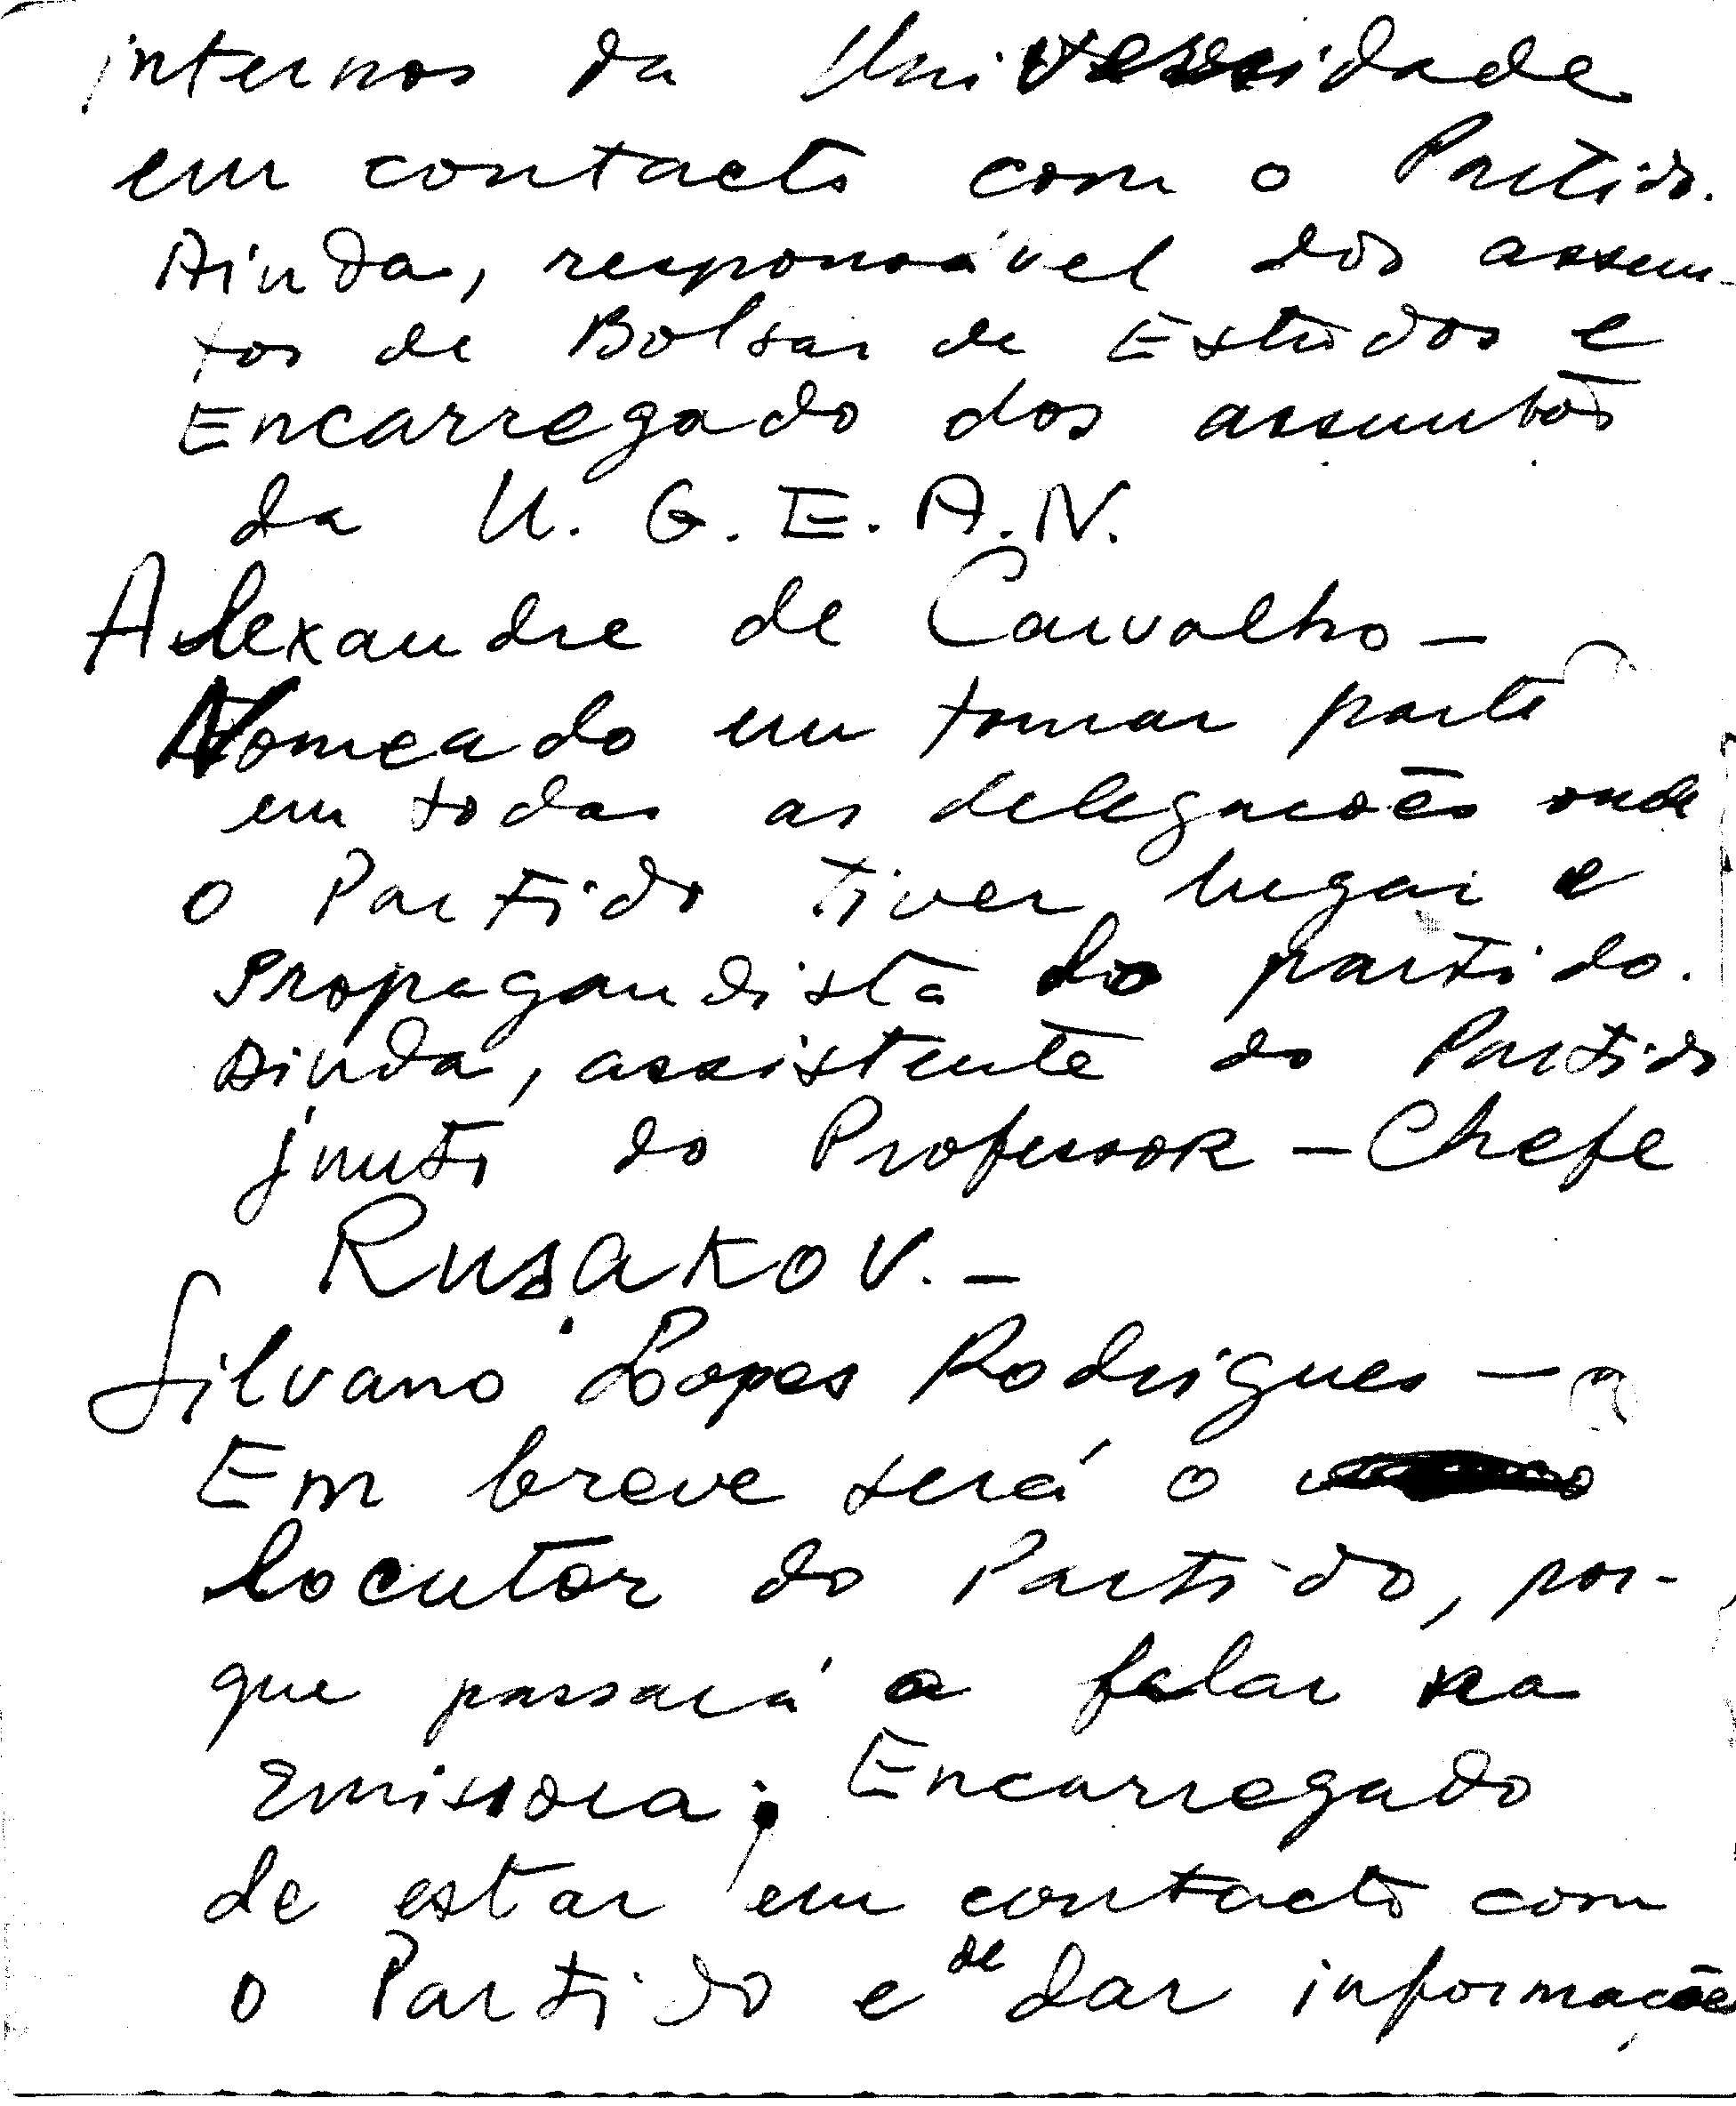 internos da Universidade
em contacto com o Partido.
Ainda, responsável dos assun-
tos de Bolsas de Estudos e
Encarregado dos assuntos
da U. G. E. A. N.
Alexandre de Carvalho -
Nomeado em tomar parte
em todas as delegações onde
o Partido tiver lugar e
Propagandista do partido.
Ainda, assistente do Partido
junto do Professor - Chefe
Rusakov. -
Silvano Lopes Rodrigues -
Em breve será o
locutor do Partido, por-
que passará a falar na
Emissora; Encarregado
de estar em contacto com
o Partido e de dar informações